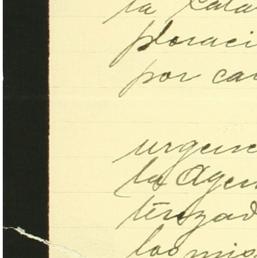 la Cata
ploraci
por car
urgenc
la Agen
terizad
los mis